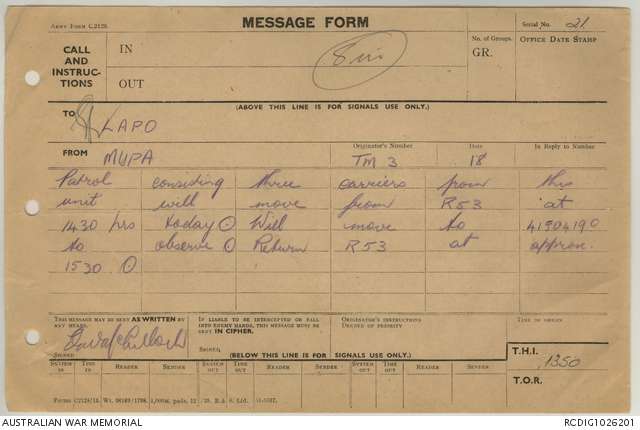 ARMY FORM C.2128.
MESSAGE FORM
Serial No. 21
CALL AND INSTRUCTIONS
IN
OUT
No. of Groups.
GR.
OFFICE DATE STAMP
(ABOVE THIS LINE IS FOR SIGNALS USE ONLY.)
TO LAPO
FROM MUPA
Originator's Number TM 3
Date 18
In Reply to Number
Patrol consisting three carriers from this
unit will move from R53 at
1430 hrs today ⊙ Will move to 41904190
to observe ⊙ Return R53 at approx.
1530 ⊙
THIS MESSAGE MAY BE SENT AS WRITTEN BY ANY MEANS.
SIGNED
IF LIABLE TO BE INTERCEPTED OR FALL INTO ENEMY HANDS, THIS MESSAGE MUST BE SENT IN CIPHER.
SIGNED.
ORIGINATOR'S INSTRUCTIONS
DEGREE OF PRIORITY
TIME OF ORIGIN
(BELOW THIS LINE IS FOR SIGNALS USE ONLY.)
T.H.I. 1350
T.O.R.
SYSTEM IN
TIME IN
READER
SENDER
SYSTEM OUT
TIME OUT
READER
SENDER
SYSTEM OUT
TIME OUT
READER
SENDER
AUSTRALIAN WAR MEMORIAL
RCDIG1026201